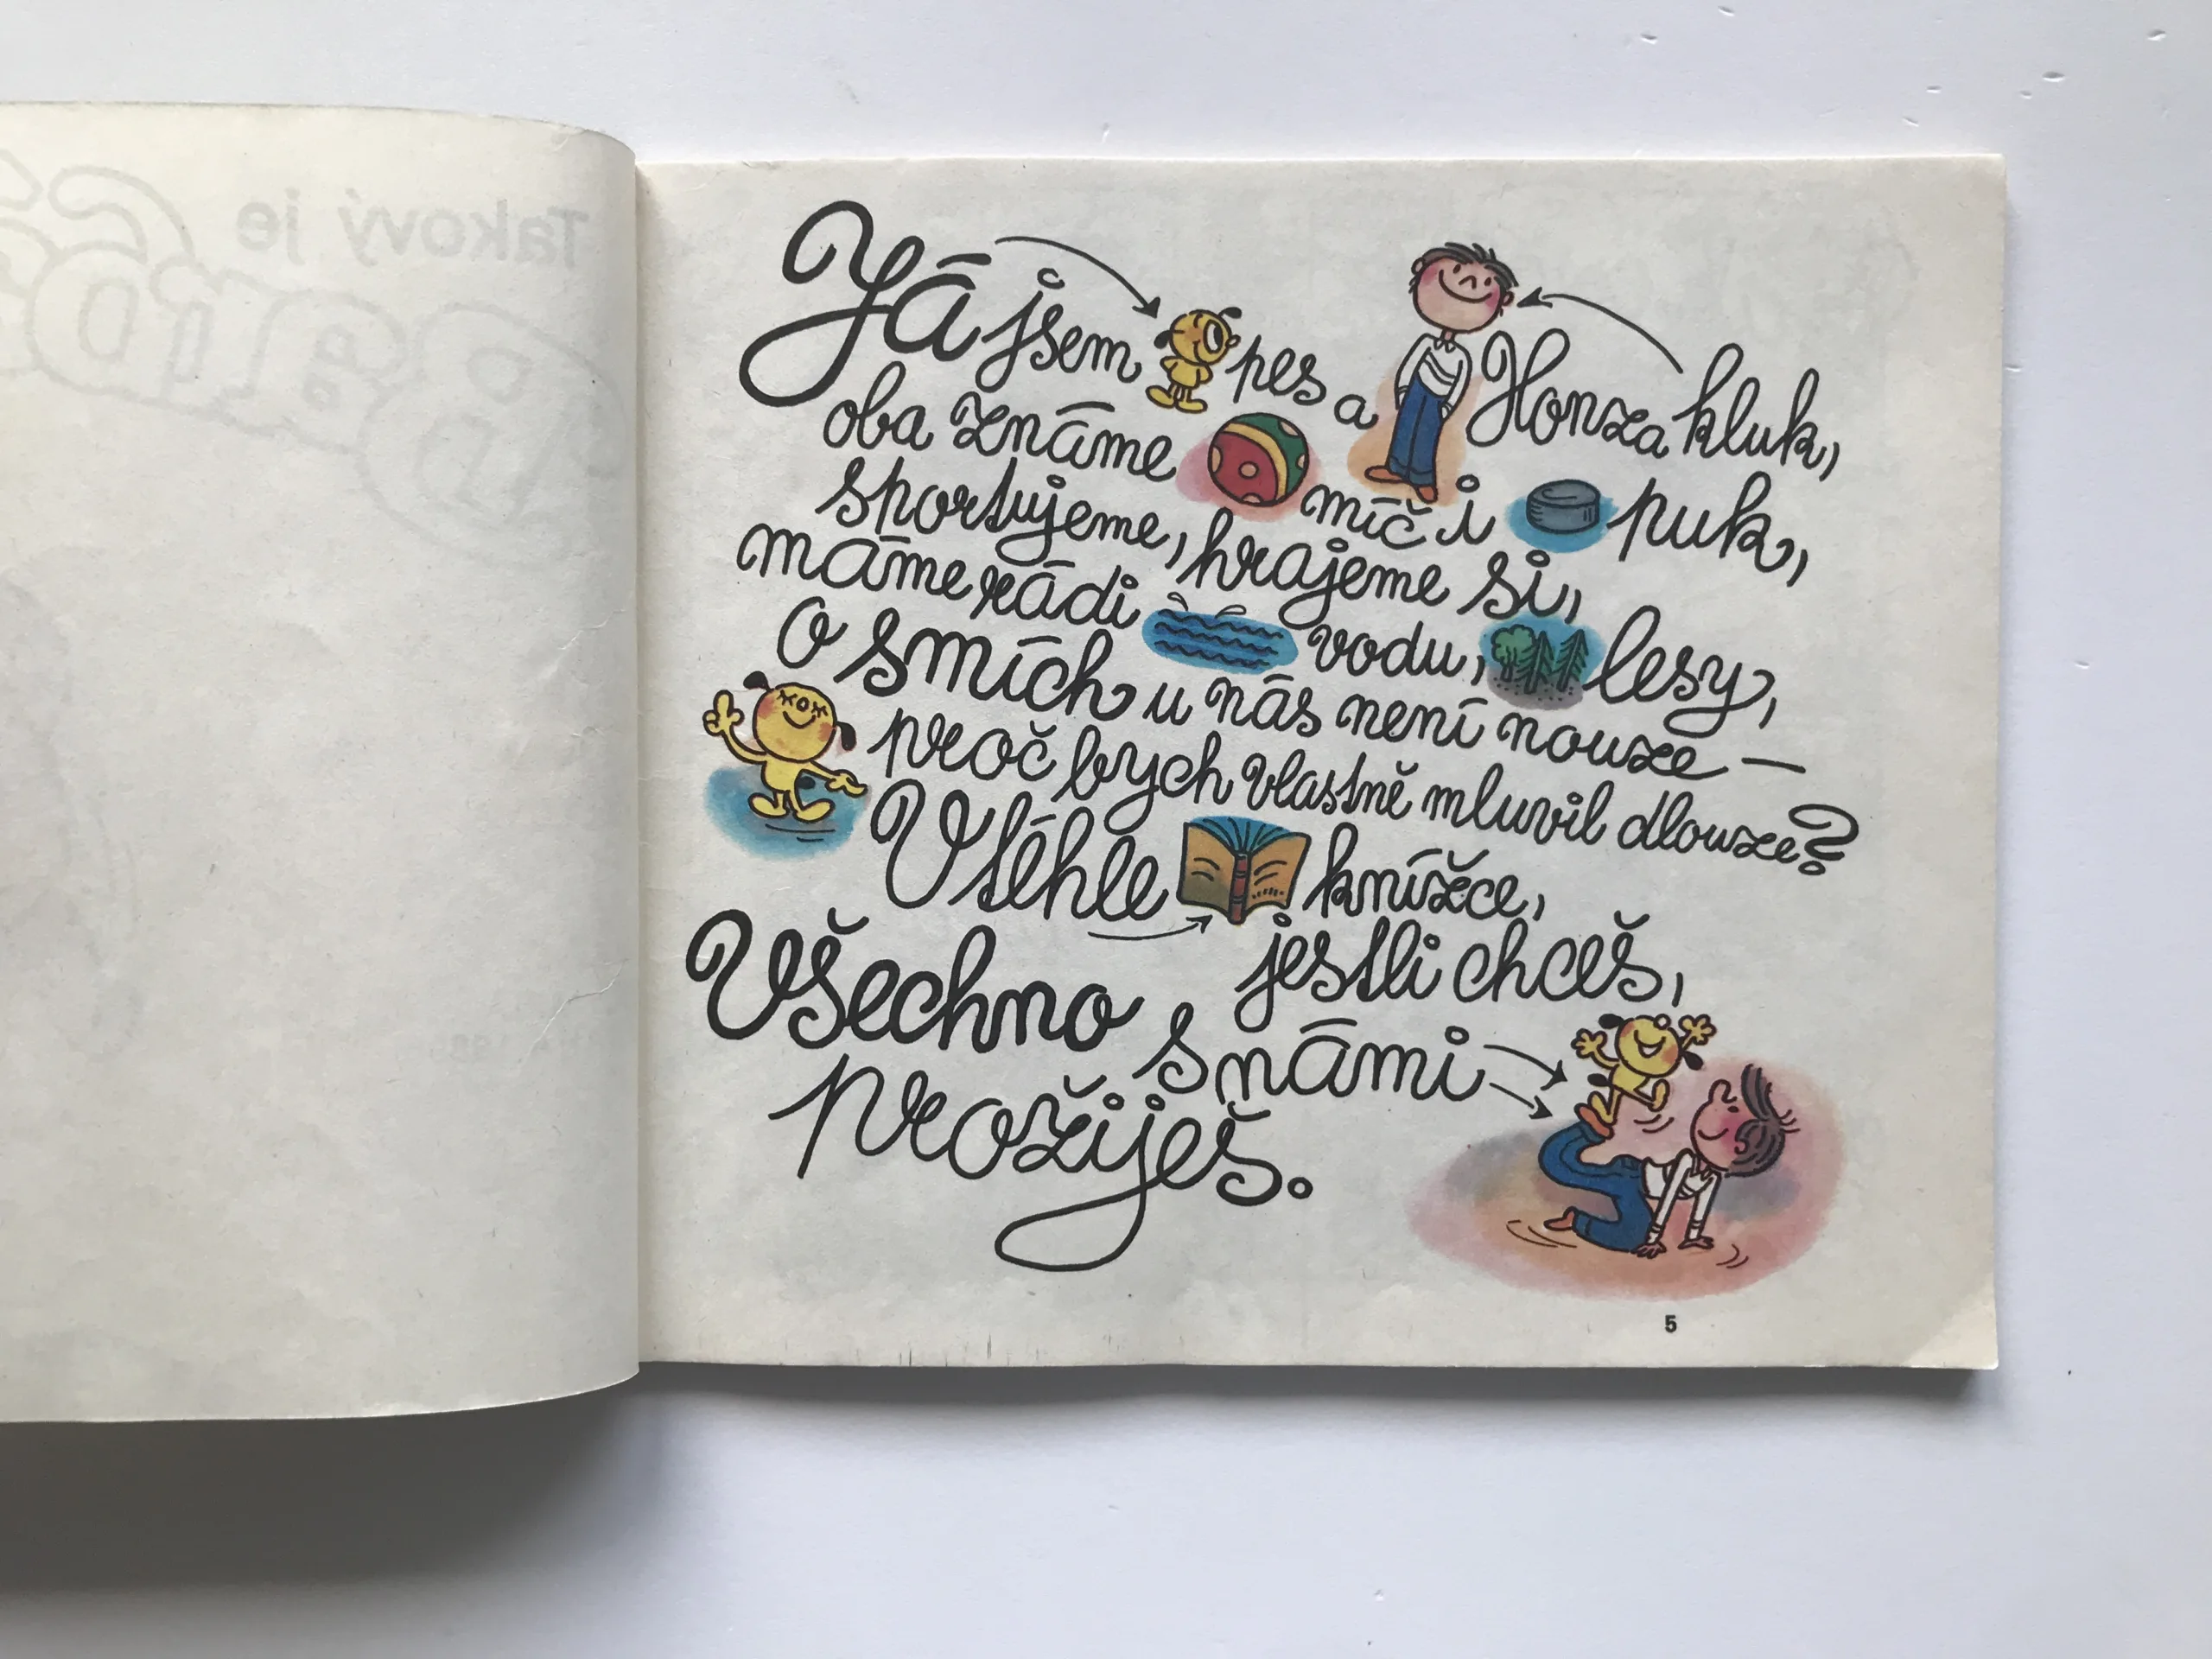 Takový je
Já jsem pes a Honza kluk,
oba známe míč i puk,
sportujeme, hrajeme si,
máme rádi vodu, lesy,
o smích u nás není nouze –
proč bych vlastně mluvil dlouze?
V téhle knížce,
jestli chceš,
Všechno s námi
prožiješ.
5